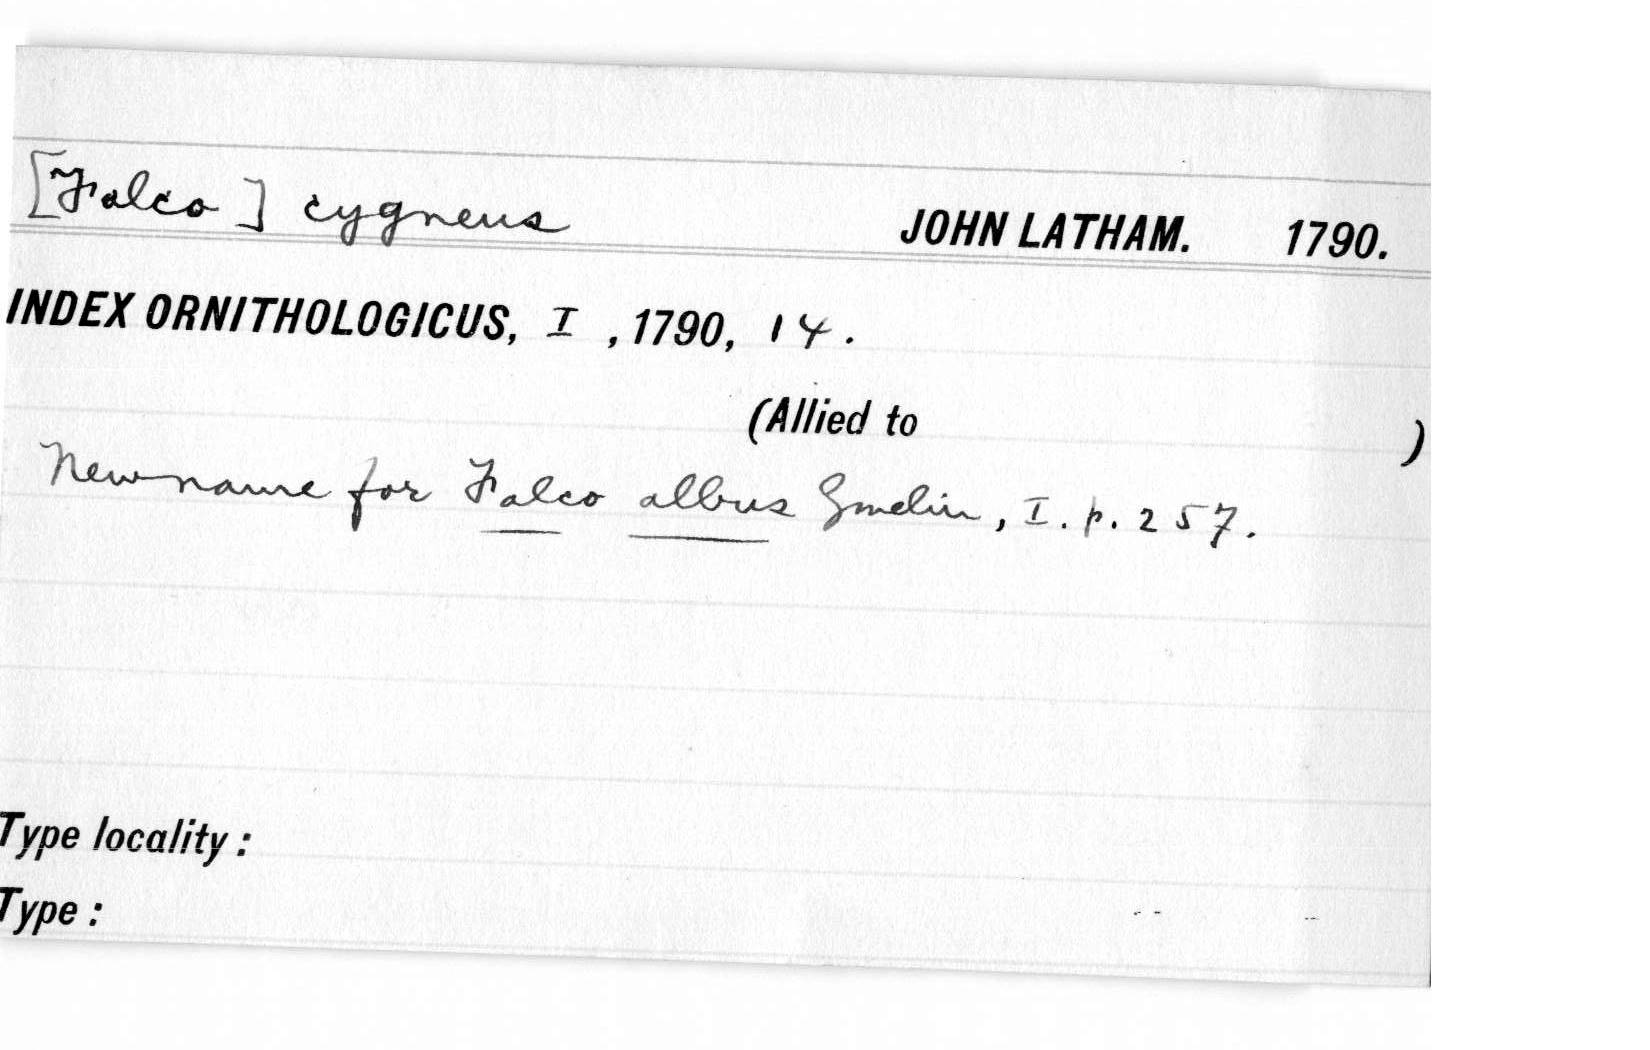 [Falco] cygneus JOHN LATHAM. 1790.
INDEX ORNITHOLOGICUS, I, 1790, 14.
(Allied to )
New name for Falco albus Gmelin, I. p. 257.
Type locality:
Type: